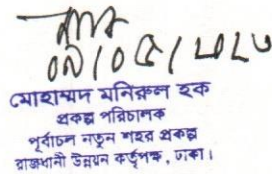 ০৯/০৫/২০২৩
মোহাম্মদ মনিরুল হক
প্রকল্প পরিচালক
পূর্বাচল নতুন শহর প্রকল্প
রাজধানী উন্নয়ন কর্তৃপক্ষ, ঢাকা।